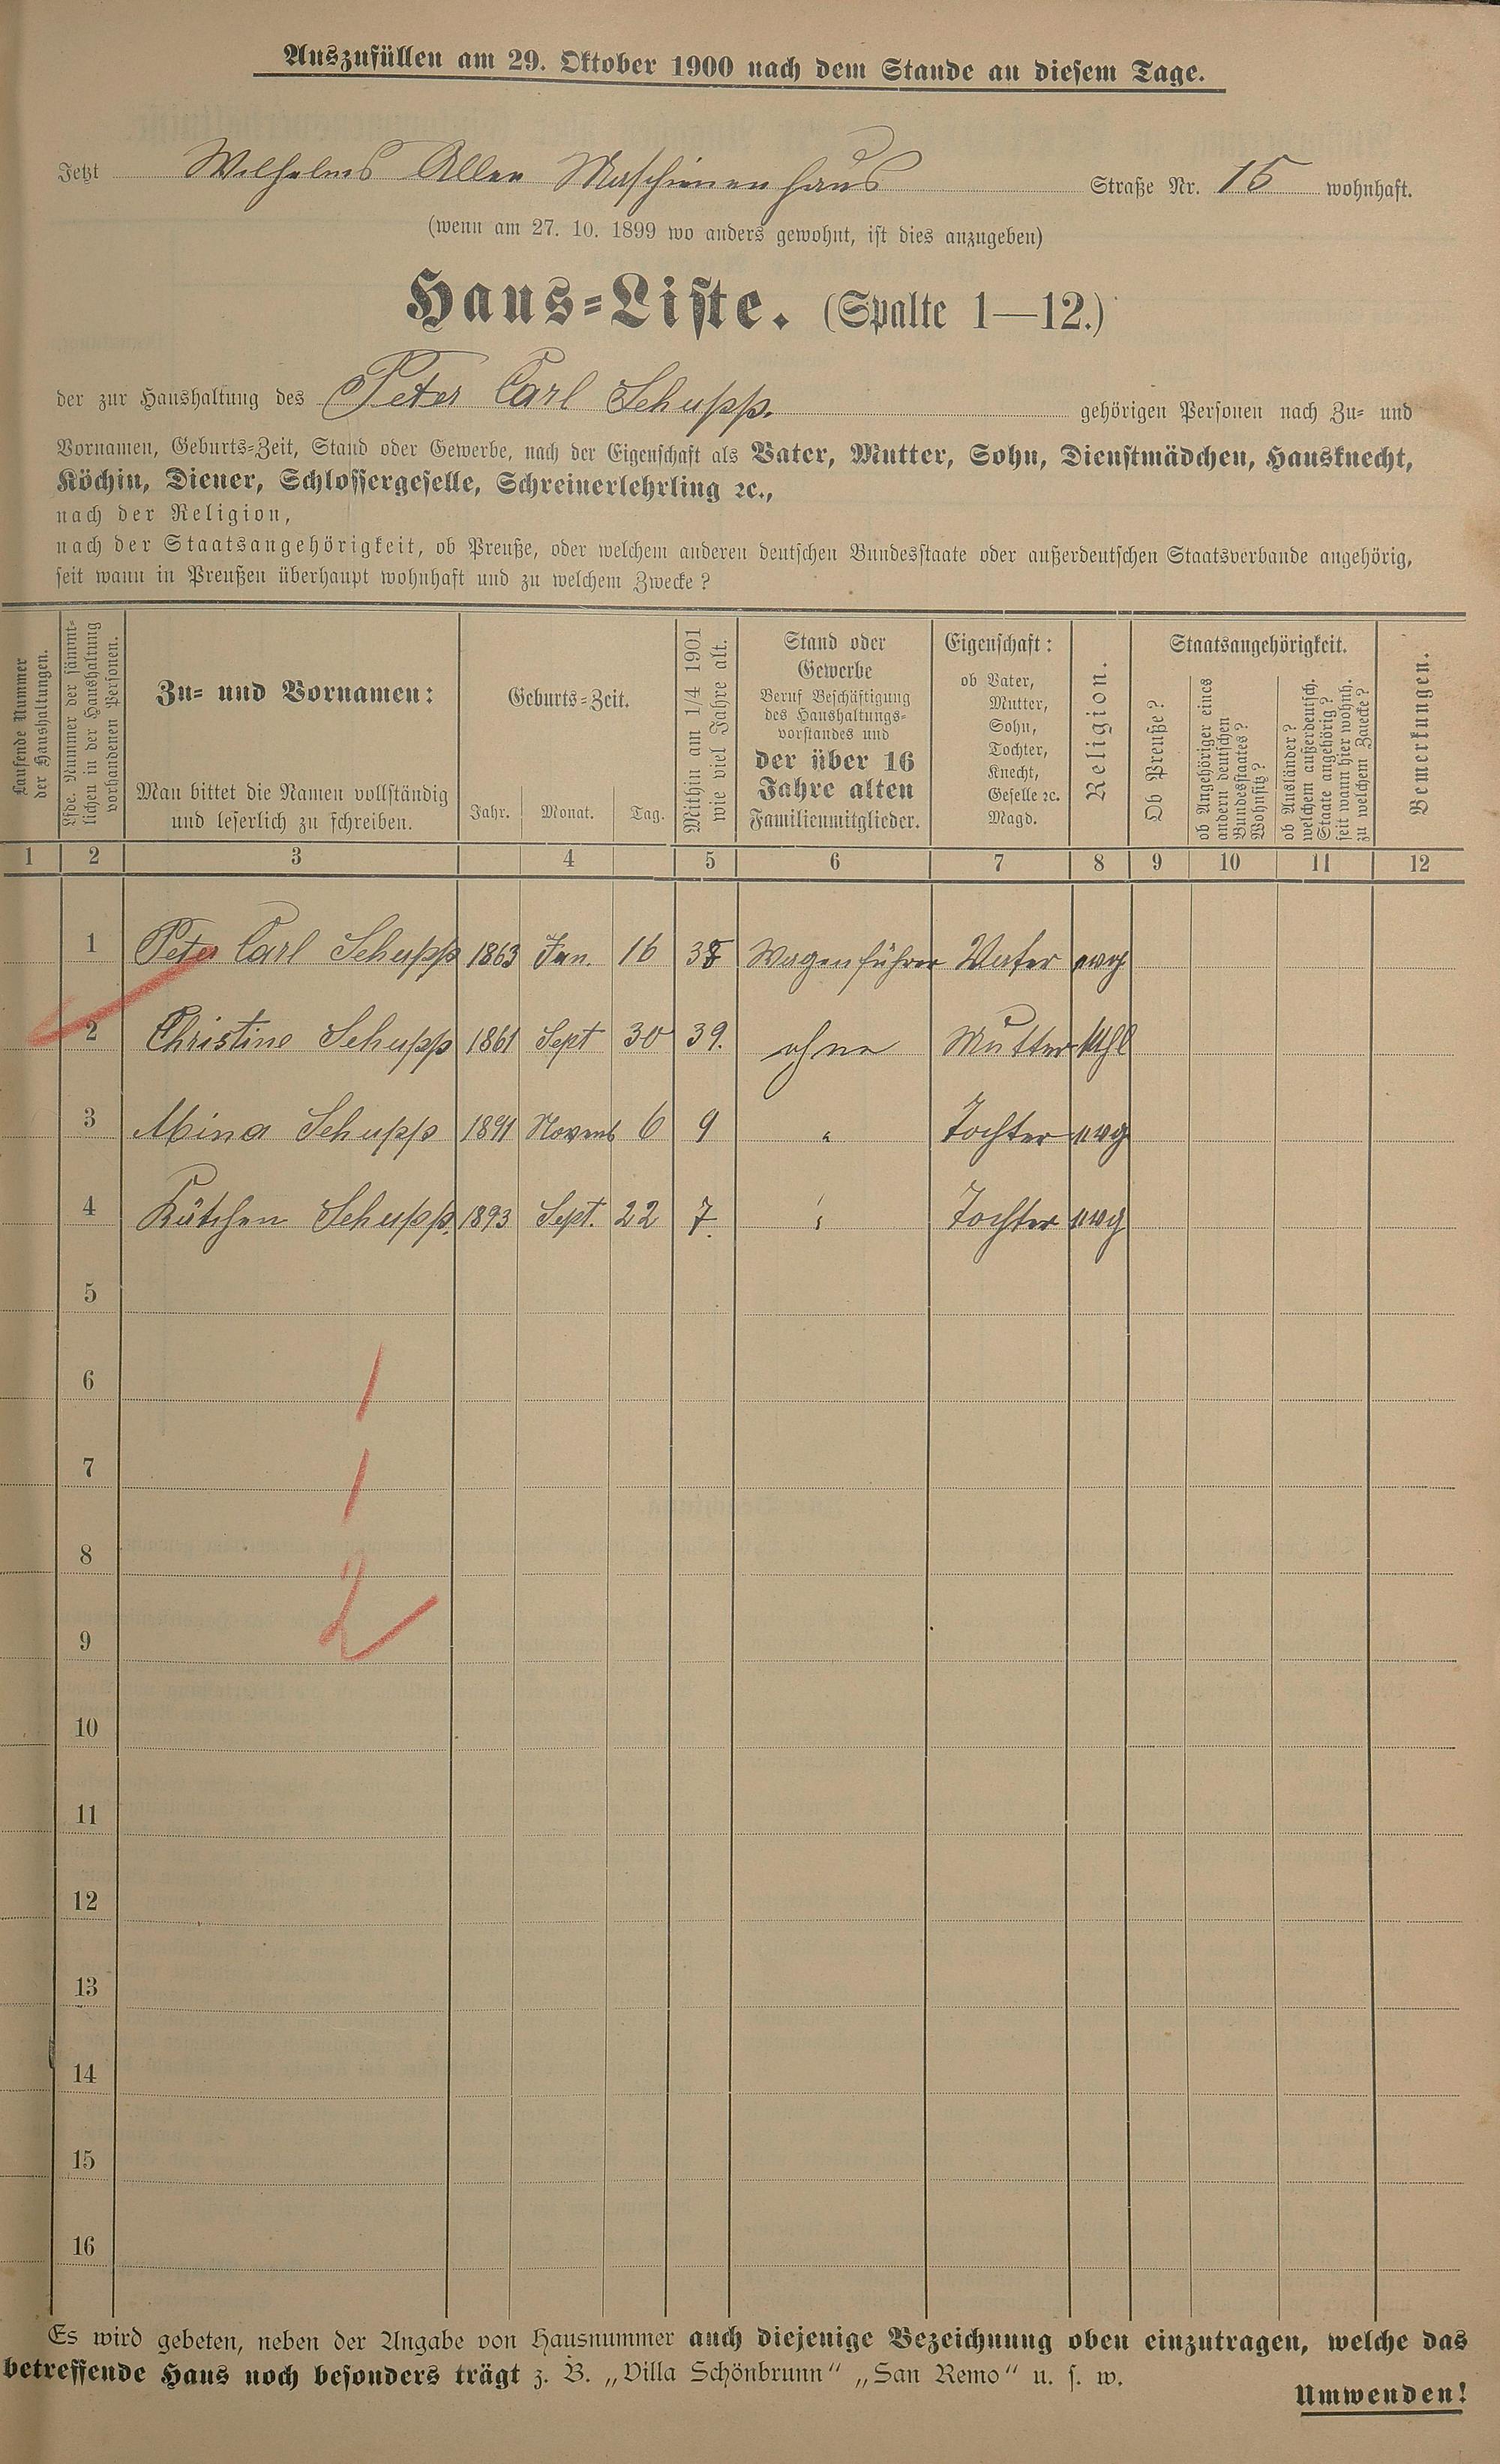 Auszufüllen am 29. Oktober 1900 nach dem Stande an diesem Tage.
Jetzt Wilhelms Allee Maschinenhaus Straße Nr. 15 wohnhaft.
(wenn am 27. 10. 1899 wo anders gewohnt, ist dies anzugeben)
Haus-Liste. (Spalte 1—12.)
der zur Haushaltung des Peter Carl Schupp. gehörigen Personen nach Zu- und
Vornamen, Geburts-Zeit, Stand oder Gewerbe, nach der Eigenschaft als Vater, Mutter, Sohn, Dienstmädchen, Hausknecht,
Köchin, Diener, Schlossergeselle, Schreinerlehrling ꝛc.,
nach der Religion,
nach der Staatsangehörigkeit, ob Preuße, oder welchem anderen deutschen Bundesstaate oder außerdeutschen Staatsverbande angehörig,
seit wann in Preußen überhaupt wohnhaft und zu welchem Zwecke?
Laufende Nummer
der Haushaltungen.
Lfde. Nummer der sämmt-
lichen in der Haushaltung
vorhandenen Personen.
Zu- und Vornamen:
Man bittet die Namen vollständig
und leserlich zu schreiben.
Geburts-Zeit.
Jahr. Monat. Tag.
Mithin am 1/4 1901
wie viel Jahre alt.
Stand oder
Gewerbe
Beruf Beschäftigung
des Haushaltungs-
vorstandes und
der über 16
Jahre alten
Familienmitglieder.
Eigenschaft:
ob Vater,
Mutter,
Sohn,
Tochter,
Knecht,
Geselle ꝛc.
Magd.
Religion.
Staatsangehörigkeit.
Ob Preuße?
ob Angehöriger eines
andern deutschen
Bundesstaates?
Wohnsitz?
ob Ausländer?
welchem außerdeutsch.
Staate angehörig?
seit wann hier wohnh.
zu welchem Zwecke?
Bemerkungen.
1 2 3 4 5 6 7 8 9 10 11 12
1 Peter Carl Schupp 1863 Jan. 16 38 Wagenführer Vater evg
2 Christine Schupp 1861 Sept 30 39. ohne Mutter kthl
3 Mina Schupp 1891 Novemb 6 9 " Tochter evg
4 Kätchen Schupp. 1893 Sept. 22 7. " Tochter evg
5
6 1
7 1
8
9 2
10
11
12
13
14
15
16
Es wird gebeten, neben der Angabe von Hausnummer auch diejenige Bezeichnung oben einzutragen, welche das
betreffende Haus noch besonders trägt z. B. „Villa Schönbrunn" „San Remo" u. s. w.
Umwenden!